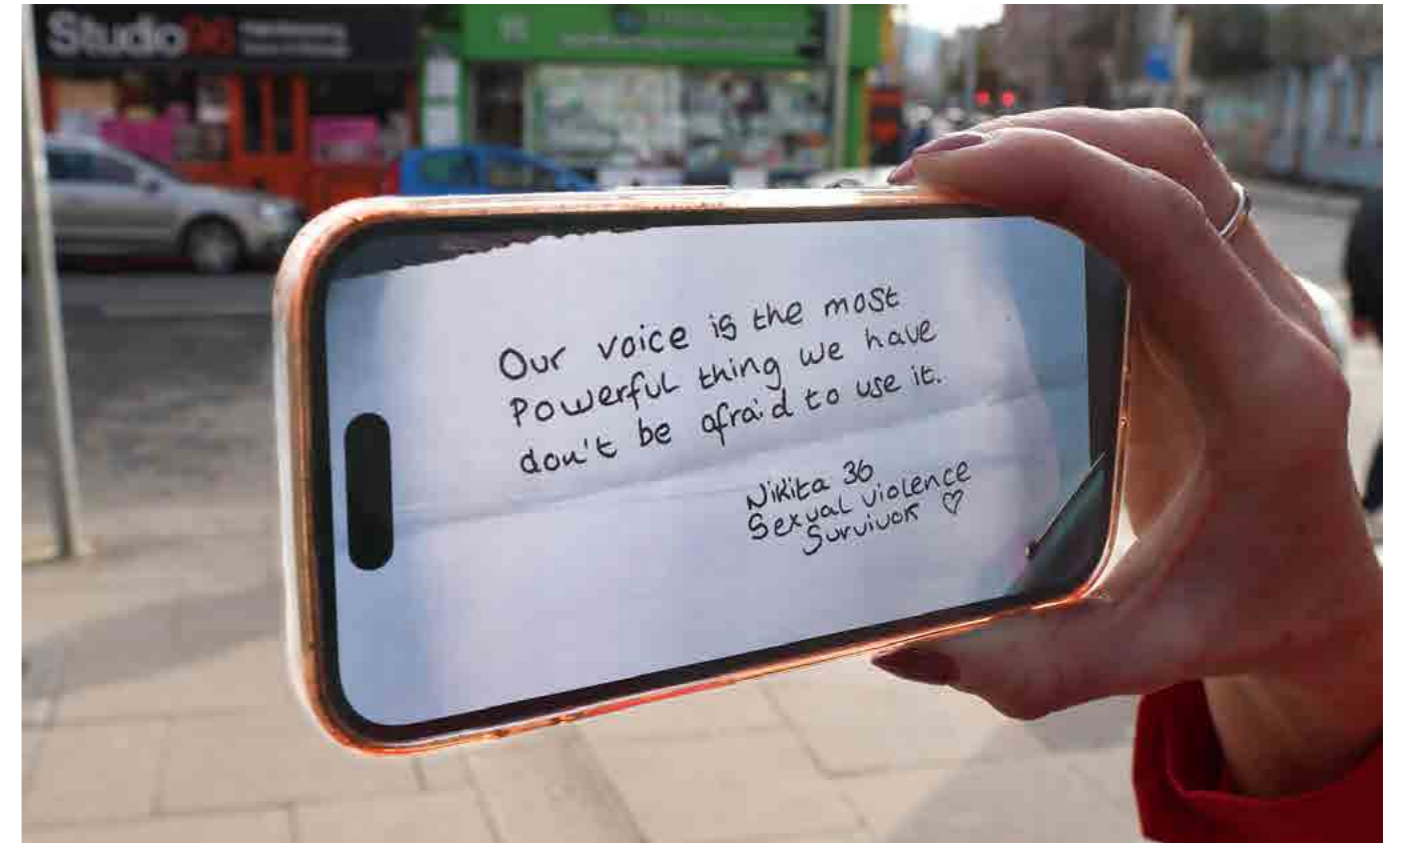 Studio96
Our voice is the most
Powerful thing we have
don't be afraid to use it.
Nikita 36
Sexual violence
Survivor ♡